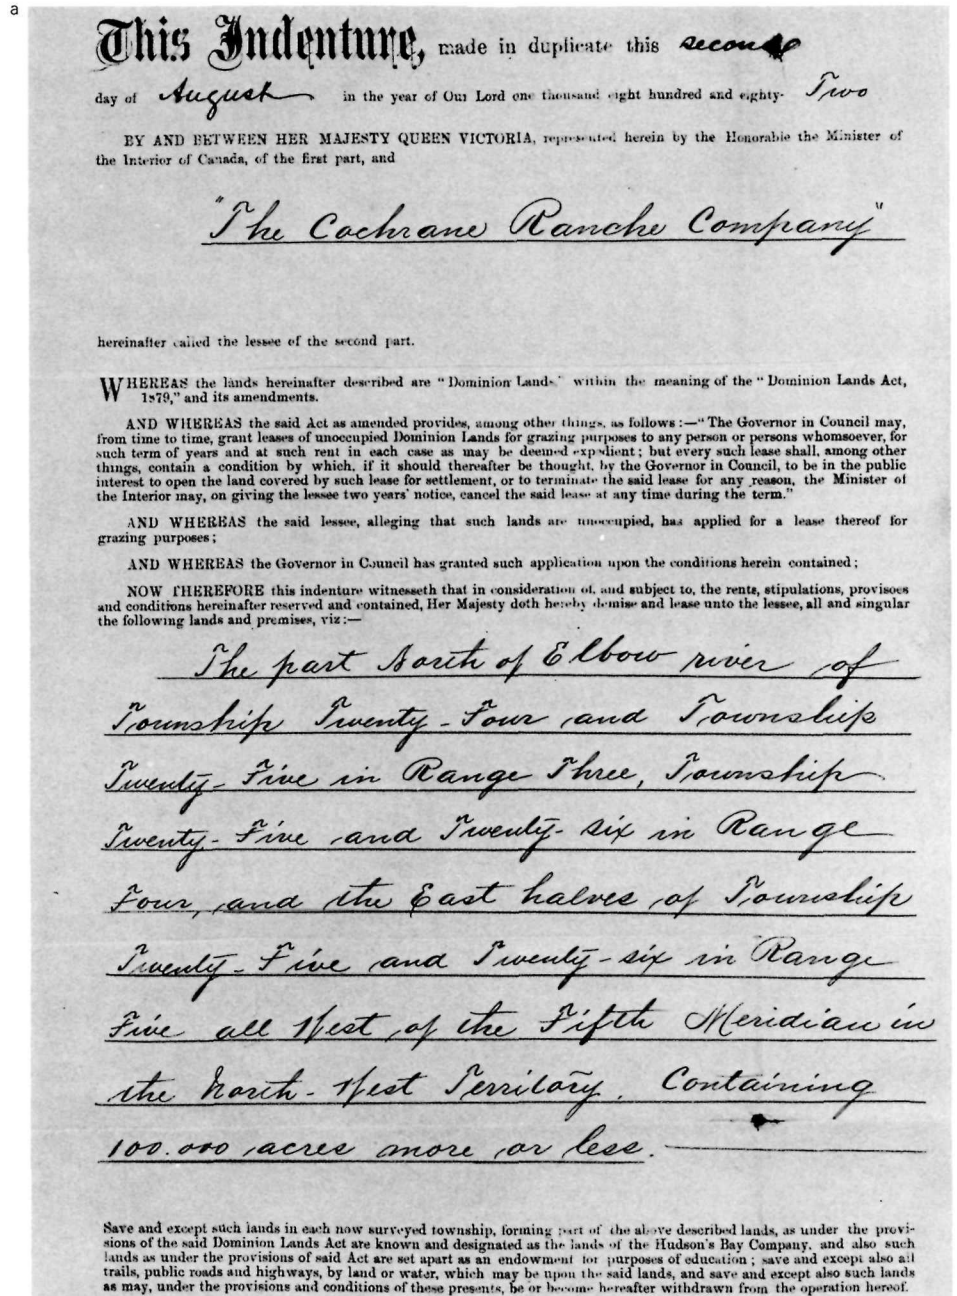 a
This Indenture, made in duplicate this second
day of August in the year of Our Lord one thousand eight hundred and eighty- Two
BY AND BETWEEN HER MAJESTY QUEEN VICTORIA, represented herein by the Honorable the Minister of
the Interior of Canada, of the first part, and
"The Cochrane Ranche Company"
hereinafter called the lessee of the second part.
WHEREAS the lands hereinafter described are "Dominion Lands" within the meaning of the "Dominion Lands Act,
1879," and its amendments.
AND WHEREAS the said Act as amended provides, among other things, as follows:—"The Governor in Council may,
from time to time, grant leases of unoccupied Dominion Lands for grazing purposes to any person or persons whomsoever, for
such term of years and at such rent in each case as may be deemed expedient; but every such lease shall, among other
things, contain a condition by which, if it should thereafter be thought, by the Governor in Council, to be in the public
interest to open the land covered by such lease for settlement, or to terminate the said lease for any reason, the Minister of
the Interior may, on giving the lessee two years' notice, cancel the said lease at any time during the term."
AND WHEREAS the said lessee, alleging that such lands are unoccupied, has applied for a lease thereof for
grazing purposes;
AND WHEREAS the Governor in Council has granted such application upon the conditions herein contained;
NOW THEREFORE this indenture witnesseth that in consideration of, and subject to, the rents, stipulations, provisoes
and conditions hereinafter reserved and contained, Her Majesty doth hereby demise and lease unto the lessee, all and singular
the following lands and premises, viz:—
The part North of Elbow river of
Township Twenty-Four and Township
Twenty-Five in Range Three, Township
Twenty-Five and Twenty-six in Range
Four, and the East halves of Township
Twenty-Five and Twenty-six in Range
Five all West of the Fifth Meridian in
the North-West Territory. Containing
100.000 acres more or less.
Save and except such lands in each now surveyed township, forming part of the above described lands, as under the provi-
sions of the said Dominion Lands Act are known and designated as the lands of the Hudson's Bay Company, and also such
lands as under the provisions of said Act are set apart as an endowment for purposes of education; save and except also all
trails, public roads and highways, by land or water, which may be upon the said lands, and save and except also such lands
as may, under the provisions and conditions of these presents, be or become hereafter withdrawn from the operation hereof.